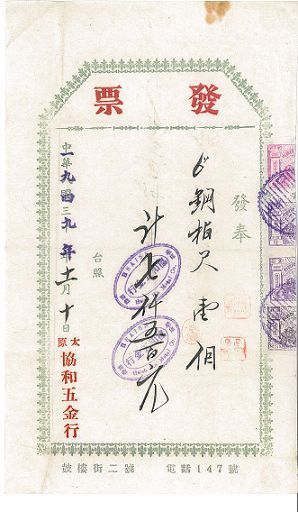 發票
發奉
6"鋼板尺壹個
計七仟五百元
台照
中華九國三九年十一月十日
太原
協和五金行
鼓樓街二號 電話147號